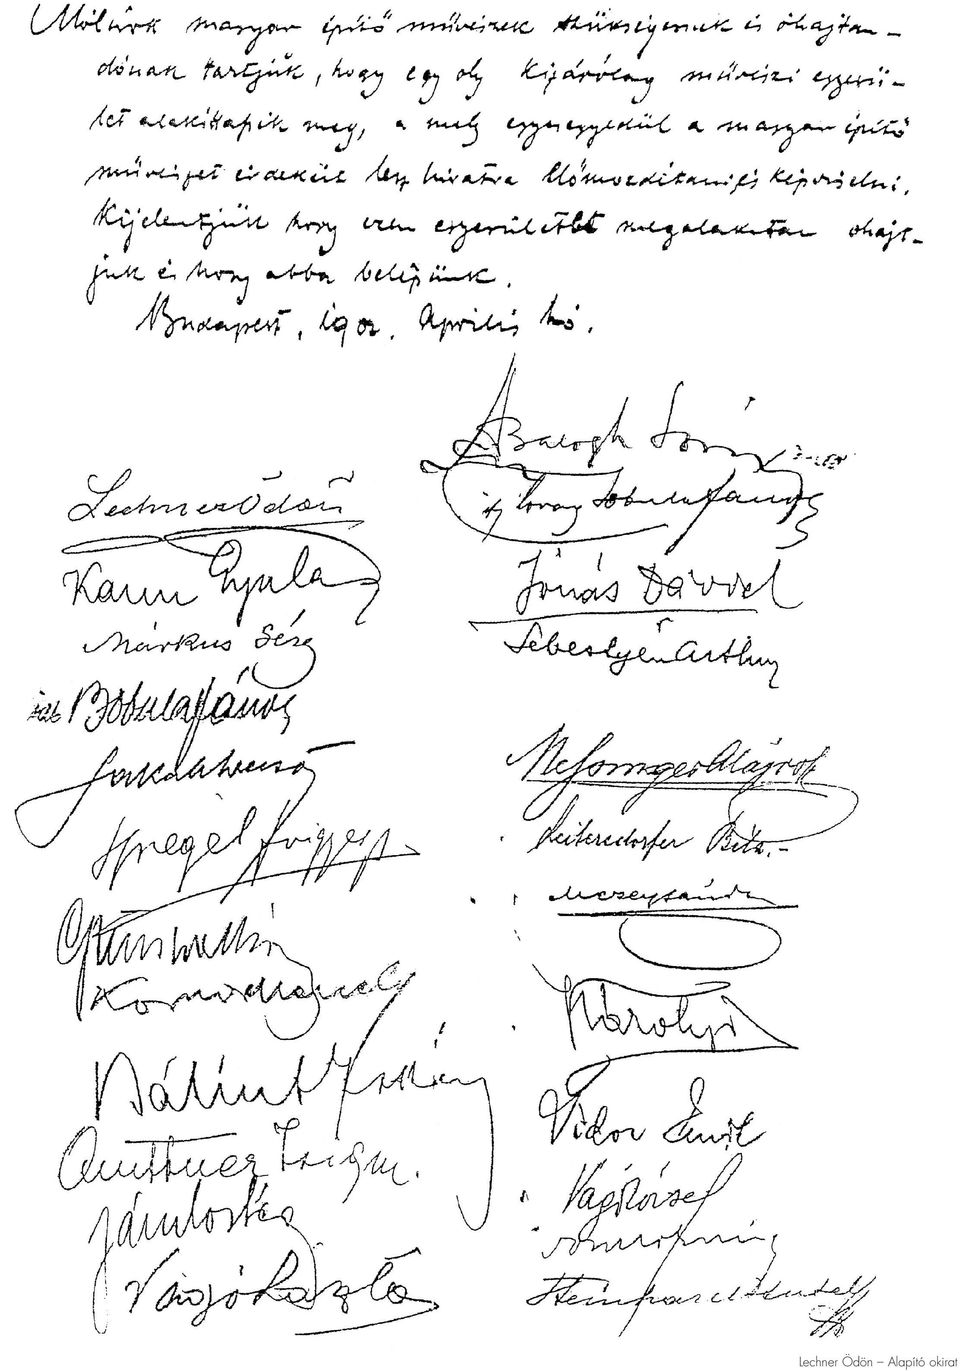 Alólírók magyar építő művészek szükségesnek és óhajtan-
dónak tartjuk, hogy egy oly kizárólag művészi egyesü-
let alakíttassék meg, a mely egyesegyedül a magyar építő
művészet érdekeit lesz hivatva előmozdítani és képviselni.
Kijelentjük hogy ezen egyesületet megalakítani ohajt-
juk és hogy abba belépünk.
Budapest, 1902. Április hó.
Balogh Lóránd
Lechner Ödön
ifj Bobula János
Kann Gyula
Jónás Dávid
Márkus Géza
Sebestyén Arthur
id Bobula János
Jakab Dezső
Messinger Alajos
Spiegel Frigyes
Leitersdorfer Béla
Mezey Sándor
Komor Marcell
Károlyi
Bálint Zoltán
Vidor Emil
Quittner Zsigm.
Vágó József
Jámbor
Vágó László
Steinhardt
Lechner Ödön – Alapító okirat